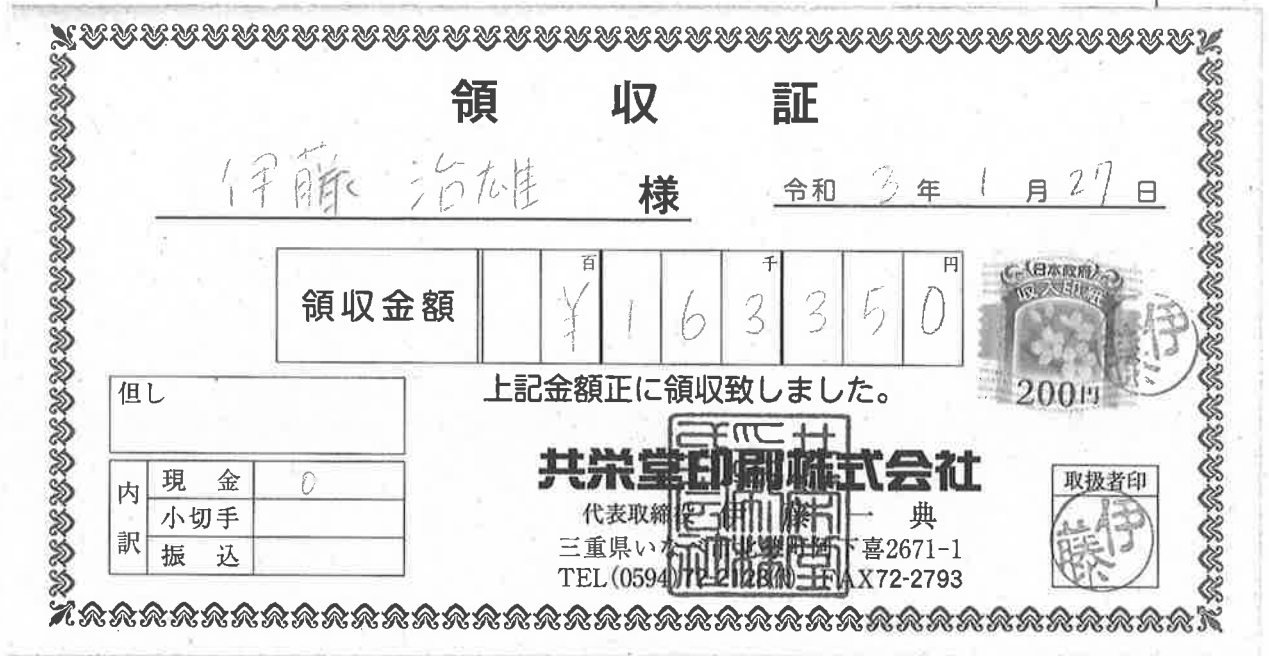 領収証
伊藤 治雄 様
令和 3 年 1 月 27 日
領収金額 百 千 円
¥163350
日本政府
収入印紙
200円
伊藤
上記金額正に領収致しました。
但し
内訳
現金 0
小切手
振込
共栄堂印刷株式会社
代表取締役 伊藤 一典
三重県いなべ市北勢町阿下喜2671-1
TEL(0594)72-2128㈹ FAX72-2793
取扱者印
伊藤